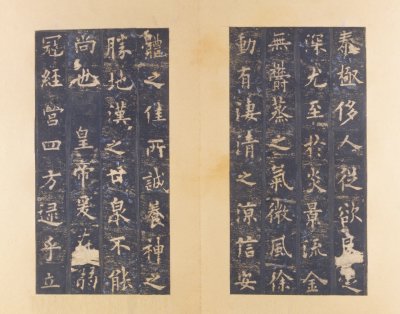 泰極侈人從欲
深尤至於炎景流金
無欝蒸之氣微風徐
動有淒清之涼信安
體之佳所誠養神之
勝地漢之甘泉不能
尚也 皇帝爰弱
冠經營四方逮乎立